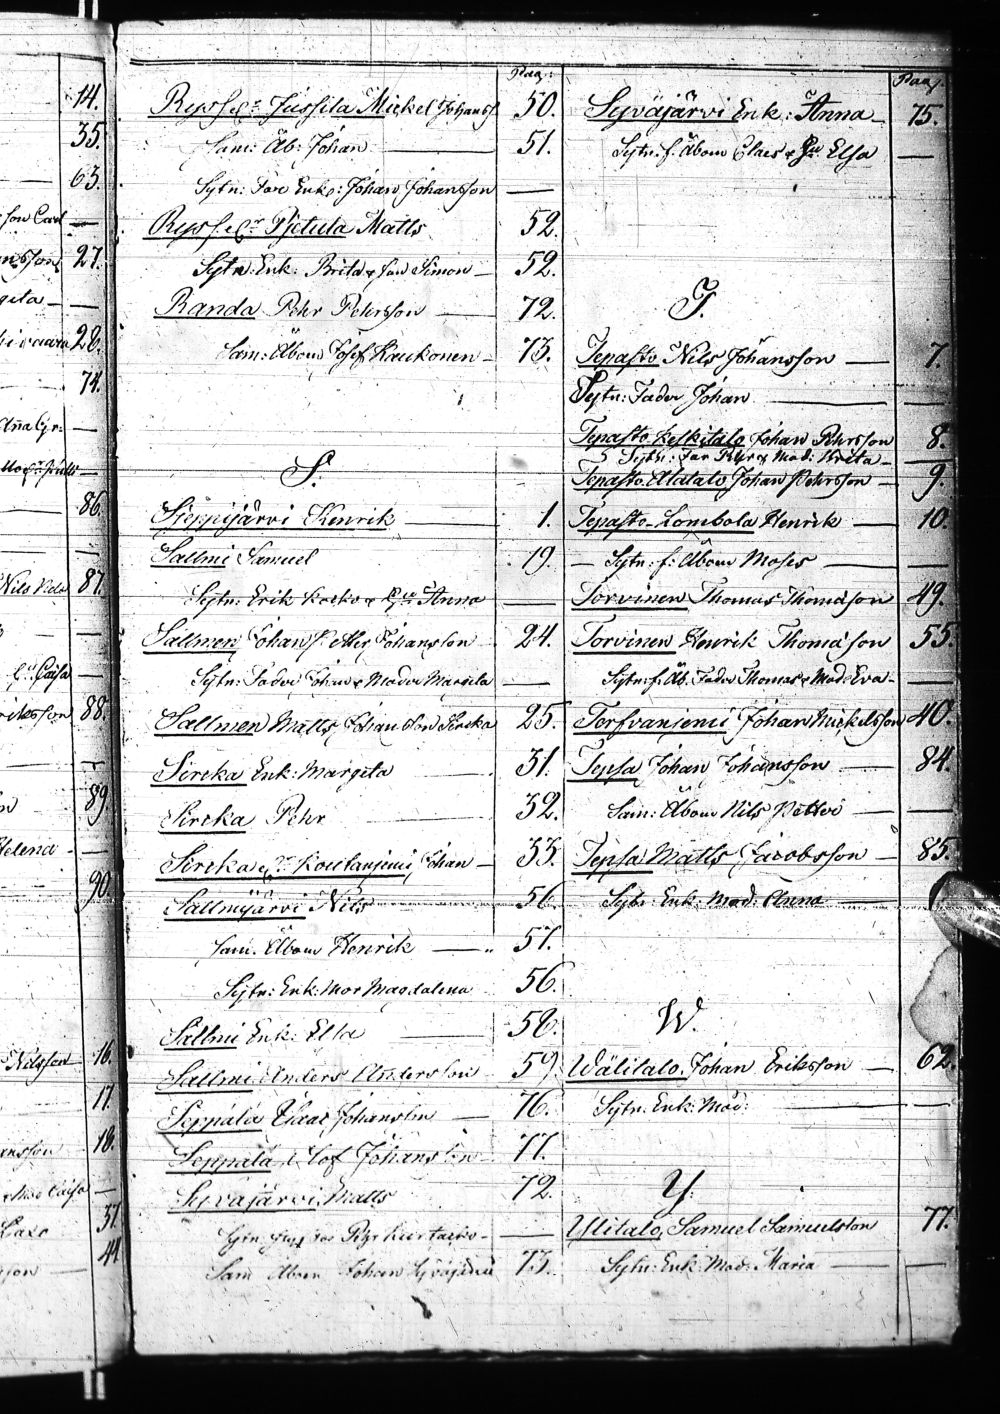 14.
35.
63.
son Carl —
27.
gita —
28.
74.
—
—
86.
—
Nils 87.
—
Caisa —
riksson 88.
89.
Helena —
90.
Nilsson 16.
17.
ansson 18.
Caisa —
37.
44.
Pag:
Ryss Jussila Mickel Johanss 50.
Sam: Åb: Johan — 51.
Sytn: Enk: Johan Johansson —
Ryss Pjetula Matts 52.
Sytn: Enk: Brita & Simon — 52.
Randa Pehr Pehrsson — 72.
Sam: Åboen Josef Kaukonen — 73.
S.
Sieppijärvi Henrik — 1.
Sallmi Samuel 19.
Sytn: Erik & Anna —
Sallmen Johan Petter Johansson 24.
Sytn: Fader Johan & Moder Margeta —
Sallmen Matts Johan Son Sireka 25.
Sireka Enk: Margeta — 31.
Sireka Pehr — 32.
Sireka Koutanjemi Johan — 33.
Sallmijärvi Nils 56.
Sam. Åboen Henrik — 57.
Sytn: Enk: Mor Magdalena 56.
Sallmi Enk: Elsa — 58.
Sallmi Anders Andersson 59.
Seppälä Isaac Johansson — 76.
Seppälä Olof Johansson — 77.
Syväjärvi Matts 72.
Pehr —
Sam Åboen Johan Syväjärvi 73.
Pag.
Syväjärvi Enk: Anna — 75.
Sytn: f. Åboen Claes & Elsa —
T.
Tepasto Nils Johansson — 7.
Sytn: Fader Johan —
Tepasto Keskitalo Johan Pehrsson 8.
Sytn: Far Pehr & Mod: Brita —
Tepasto Alatalo Johan Pehrsson — 9.
Tepasto Lombola Henrik — 10.
— Sytn: f: Åboen Moses —
Torvinen Thomas Thomasson 49.
Torvinen Henrik Thomasson 55.
Sytn: f. Åb. Fader Thomas & Mod: Eva —
Torfvanjemi Johan Mickelsson 40.
Tepsa Johan Johansson — 84.
Sam: Åboen Nils Petter —
Tepsa Matts Jacobsson — 85.
Sytn: Enk: Mod: Anna —
W.
Wälitalo Johan Eriksson — 62.
Sytn: Enk: Mod: —
Y.
Ylitalo Samuel Samuelsson 77.
Sytn: Enk: Mod: Maria —